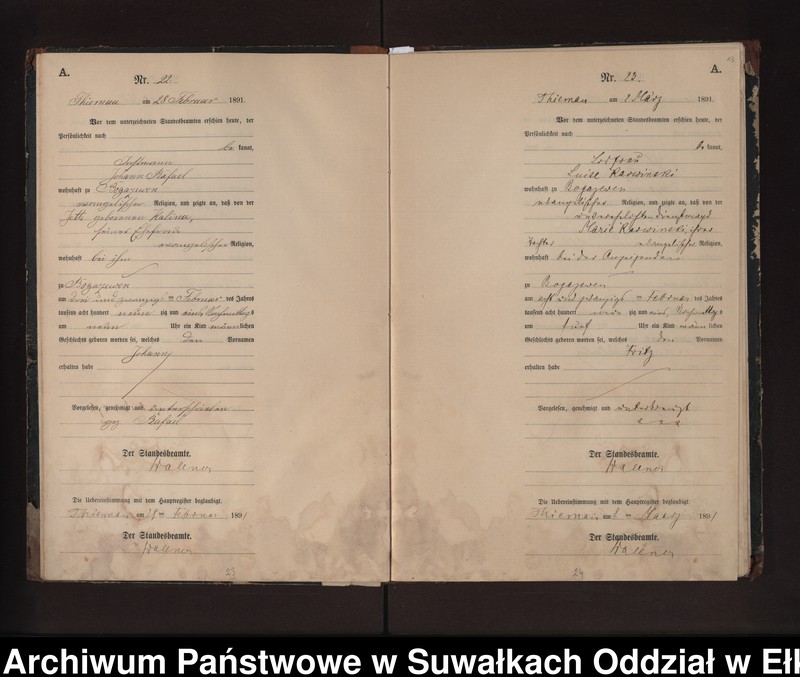 A.
Nr. 22.
Thiemau am 28 Februar 1891.
Vor dem unterzeichneten Standesbeamten erschien heute, der
Persönlichkeit nach
be kannt,
Johann Rafael
wohnhaft zu Bogazewen
evangelischer Religion, und zeigte an, daß von der
geborenen Kalina,
seiner Ehefrau
evangelischer Religion,
wohnhaft bei ihm
zu Bogazewen
am drei und zwanzigsten Februar des Jahres
tausend acht hundert neun zig und eins, Vormittags
um neun Uhr ein Kind männlichen
Geschlechts geboren worden sei, welches den Vornamen
Johann
erhalten habe
Vorgelesen, genehmigt und unterschrieben
gez Rafael
Der Standesbeamte.
Wallner
Die Uebereinstimmung mit dem Hauptregister beglaubigt.
Thiemau am 28ten Februar 1891
Der Standesbeamte.
Wallner
23
A.
Nr. 23.
Thiemau am 2 März 1891.
Vor dem unterzeichneten Standesbeamten erschien heute, der
Persönlichkeit nach
be kannt,
Losfrau
Luise Karwinski
wohnhaft zu Bogazewen
evangelischer Religion, und zeigte an, daß von der
unverehelichten Dienstmagd
Marie Karwinski ihrer
Tochter evangelischer Religion,
wohnhaft bei der Anzeigenden
zu Bogazewen
am acht und zwanzigsten Februar des Jahres
tausend acht hundert neun zig und eins, Vormittags
um fünf Uhr ein Kind männlichen
Geschlechts geboren worden sei, welches den Vornamen
Fritz
erhalten habe
Vorgelesen, genehmigt und unterkreuzt
x x x
Der Standesbeamte.
Wallner
Die Uebereinstimmung mit dem Hauptregister beglaubigt.
Thiemau am 2ten März 1891
Der Standesbeamte.
Wallner
24
Archiwum Państwowe w Suwałkach Oddział w Ełk